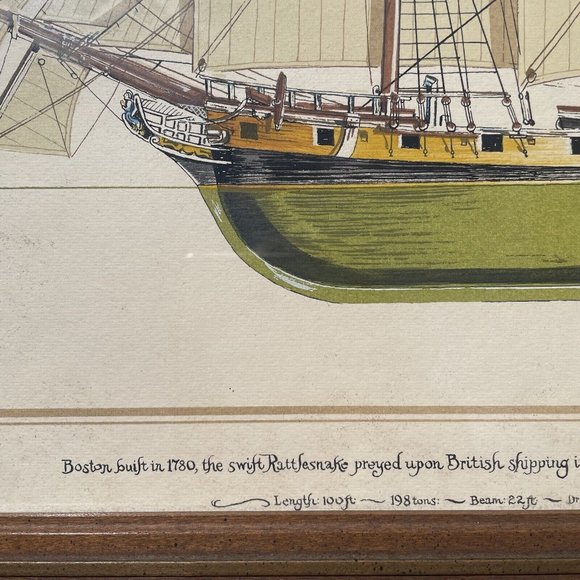 Boston built in 1780, the swift Rattlesnake preyed upon British shipping i
Length: 100ft ~ 198 tons: ~ Beam: 22ft ~ Dr